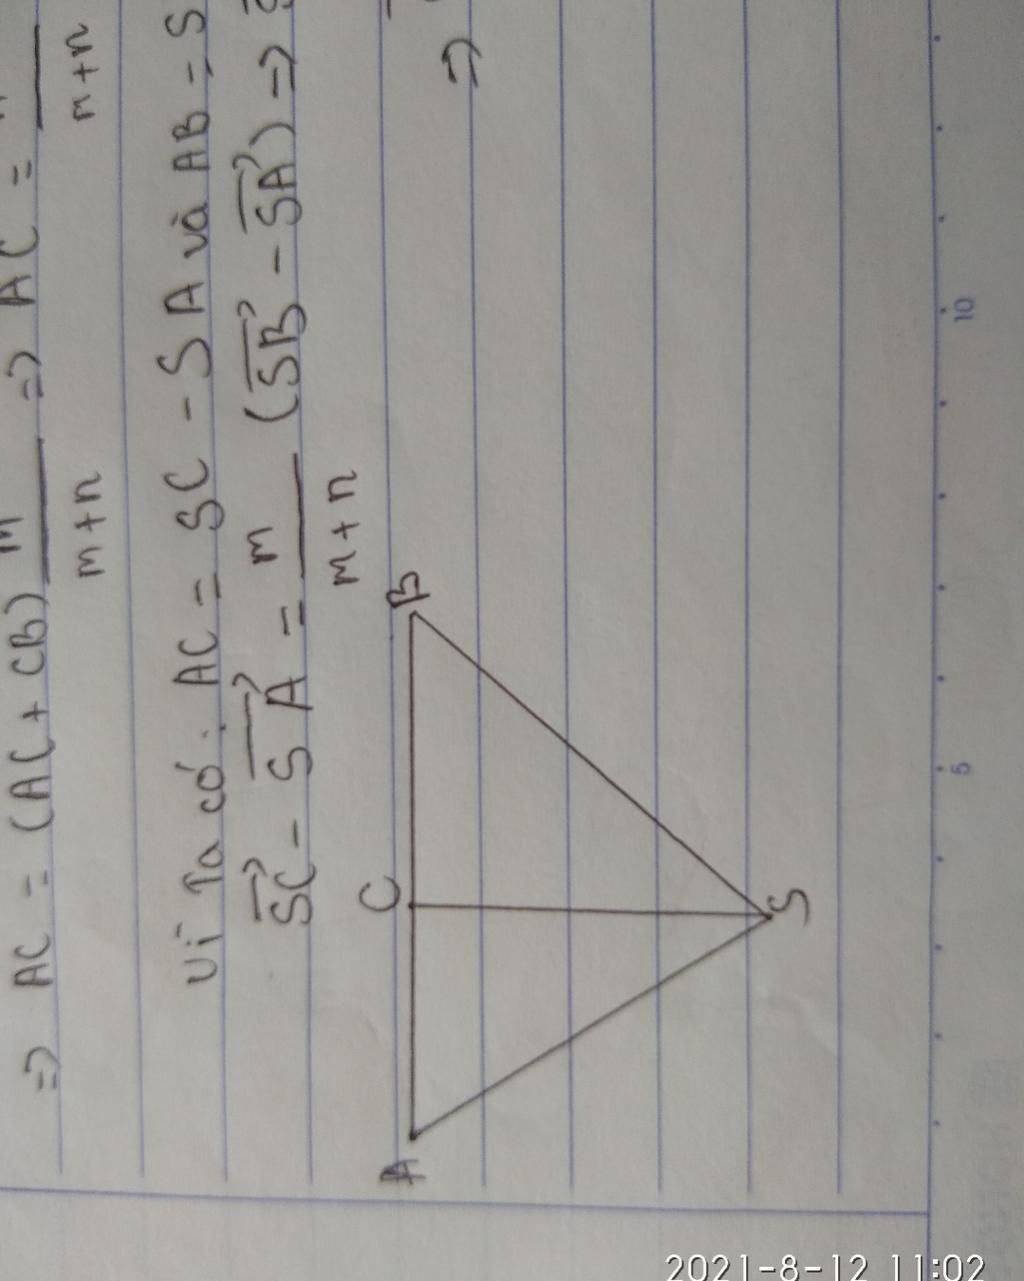 => AC = (AC + CB) m/(m+n) => AC =
m+n
Vì Ta có: AC = SC - SA và AB = S
SC→ - SA→ = m/(m+n) (SB→ - SA→) =>
=>
A C B
S
5 10
2021-8-12 11:02